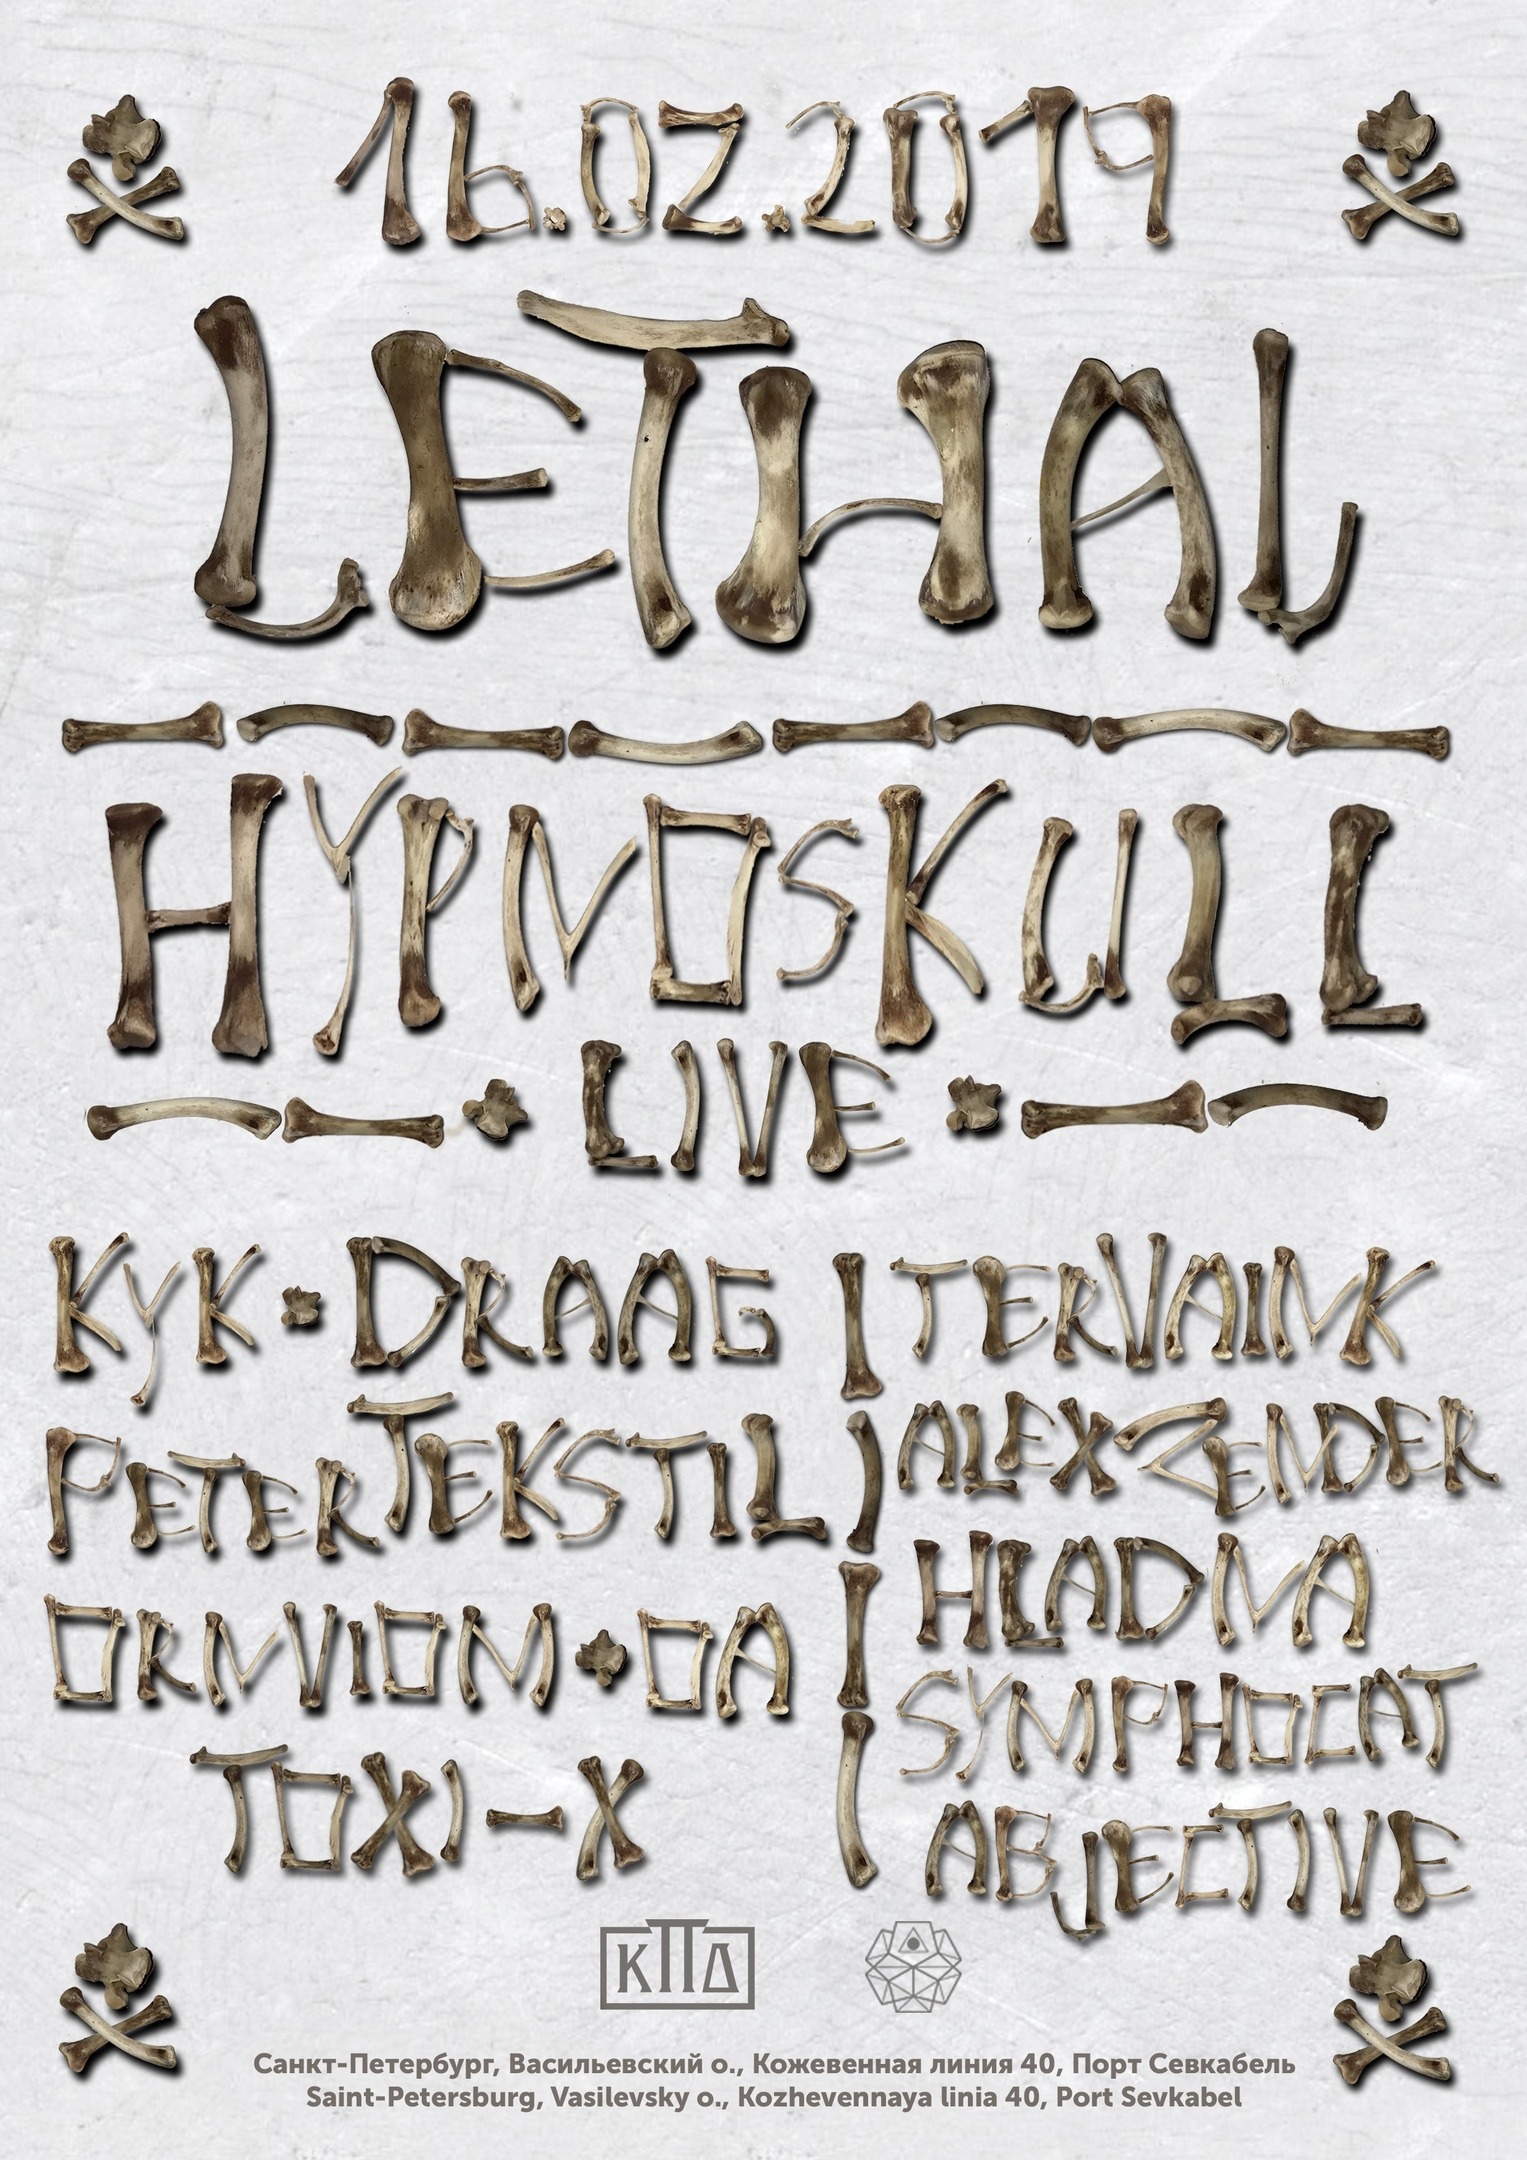 16.02.2019
LETHAL
HYPNOSKULL
LIVE
KYK DRAAG
PETER TEKSTIL
ORNVION OA
TOXI-X
TERVAINK
ALEX ZENDER
HLADNA
SYMPHOCAT
ABJECTIVE
КПД
Санкт-Петербург, Васильевский о., Кожевенная линия 40, Порт Севкабель
Saint-Petersburg, Vasilevsky o., Kozhevennaya linia 40, Port Sevkabel